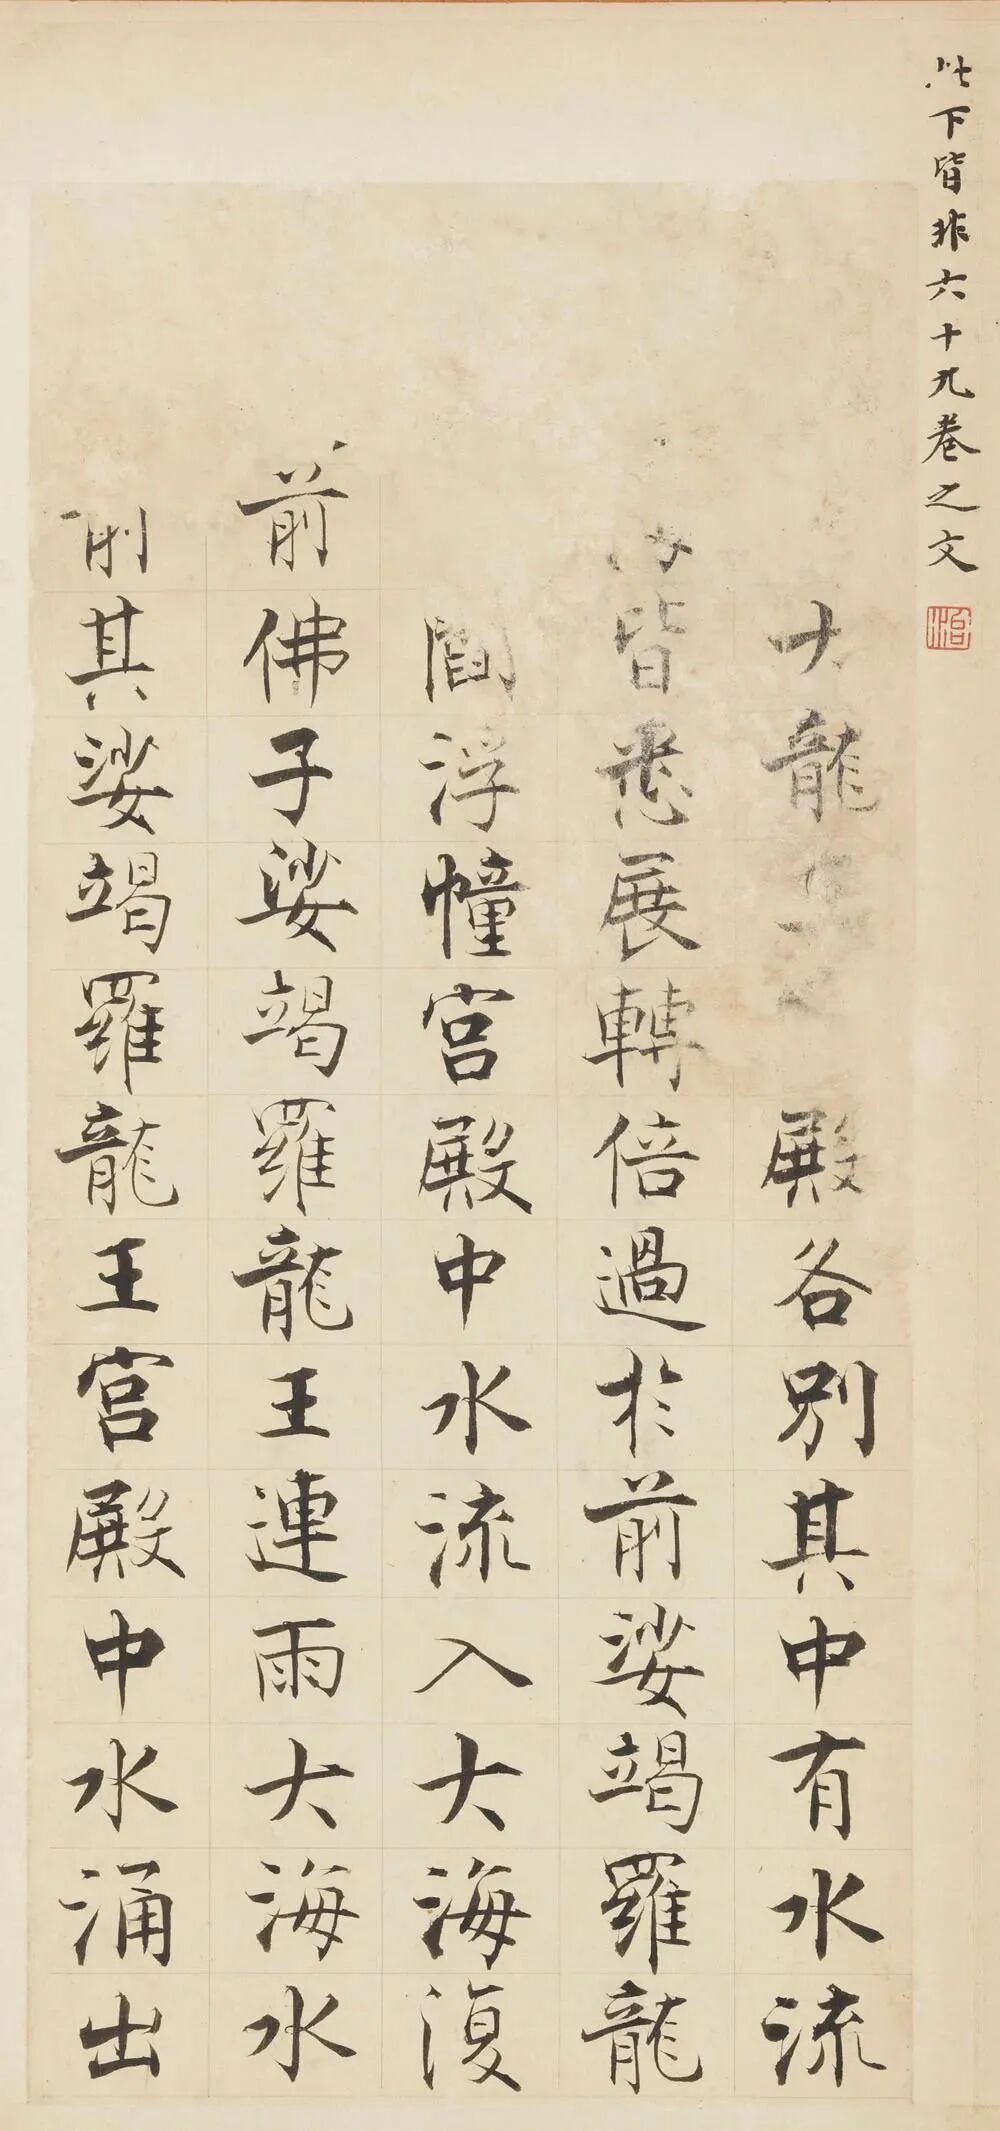 此下皆非六十九卷之文
大龍殿各別其中有水流
皆悉展轉倍過於前娑竭羅龍
閻浮幢宮殿中水流入大海復
前佛子娑竭羅龍王連雨大海水
前其娑竭羅龍王宮殿中水涌出